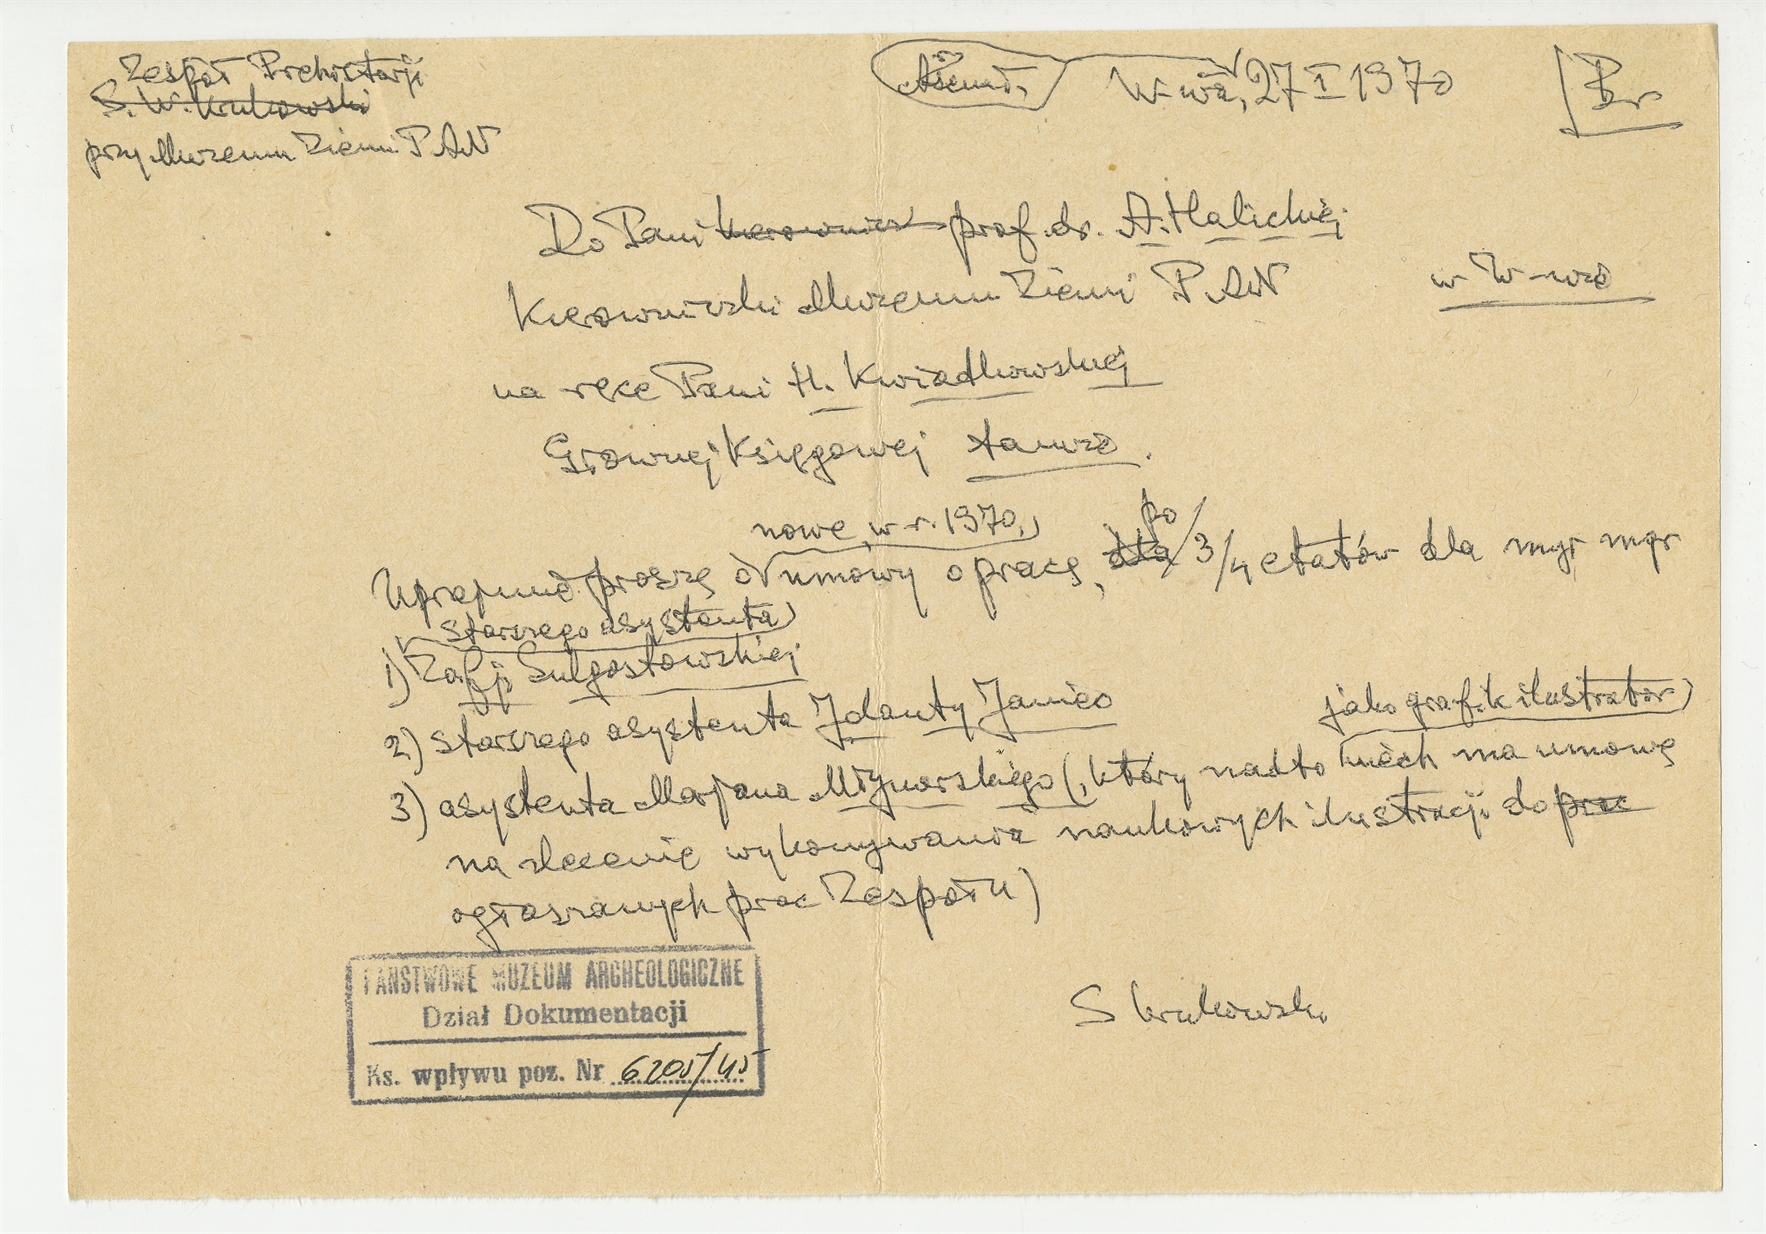 Zespół Prehistorji
S. W. Krukowski
przy Muzeum Ziemi PAN
W-wa, 27 I 1970
Br
Do Pani prof. dr. A. Halickiej
Kierowniczki Muzeum Ziemi PAN w W-wie
na ręce Pani H. Kwiatkowskiej
Głównej Księgowej tamże.
nowe, w r. 1970,
po
Uprzejmie proszę o umowy o pracę, dla 3/4 etatów dla mgr mgr
starszego asystenta
1) Zofji Sulgostowskiej
2) starszego asystenta Jolanty Janieo
jako grafik ilustrator
3) asystenta Marjana Młynarskiego (, który nadto niech ma umowę
na zlecenie wykonywania naukowych ilustracji do prac
ogłaszanych prac Zespołu)
S Krukowski
PAŃSTWOWE MUZEUM ARCHEOLOGICZNE
Dział Dokumentacji
Ks. wpływu poz. Nr 6205/45